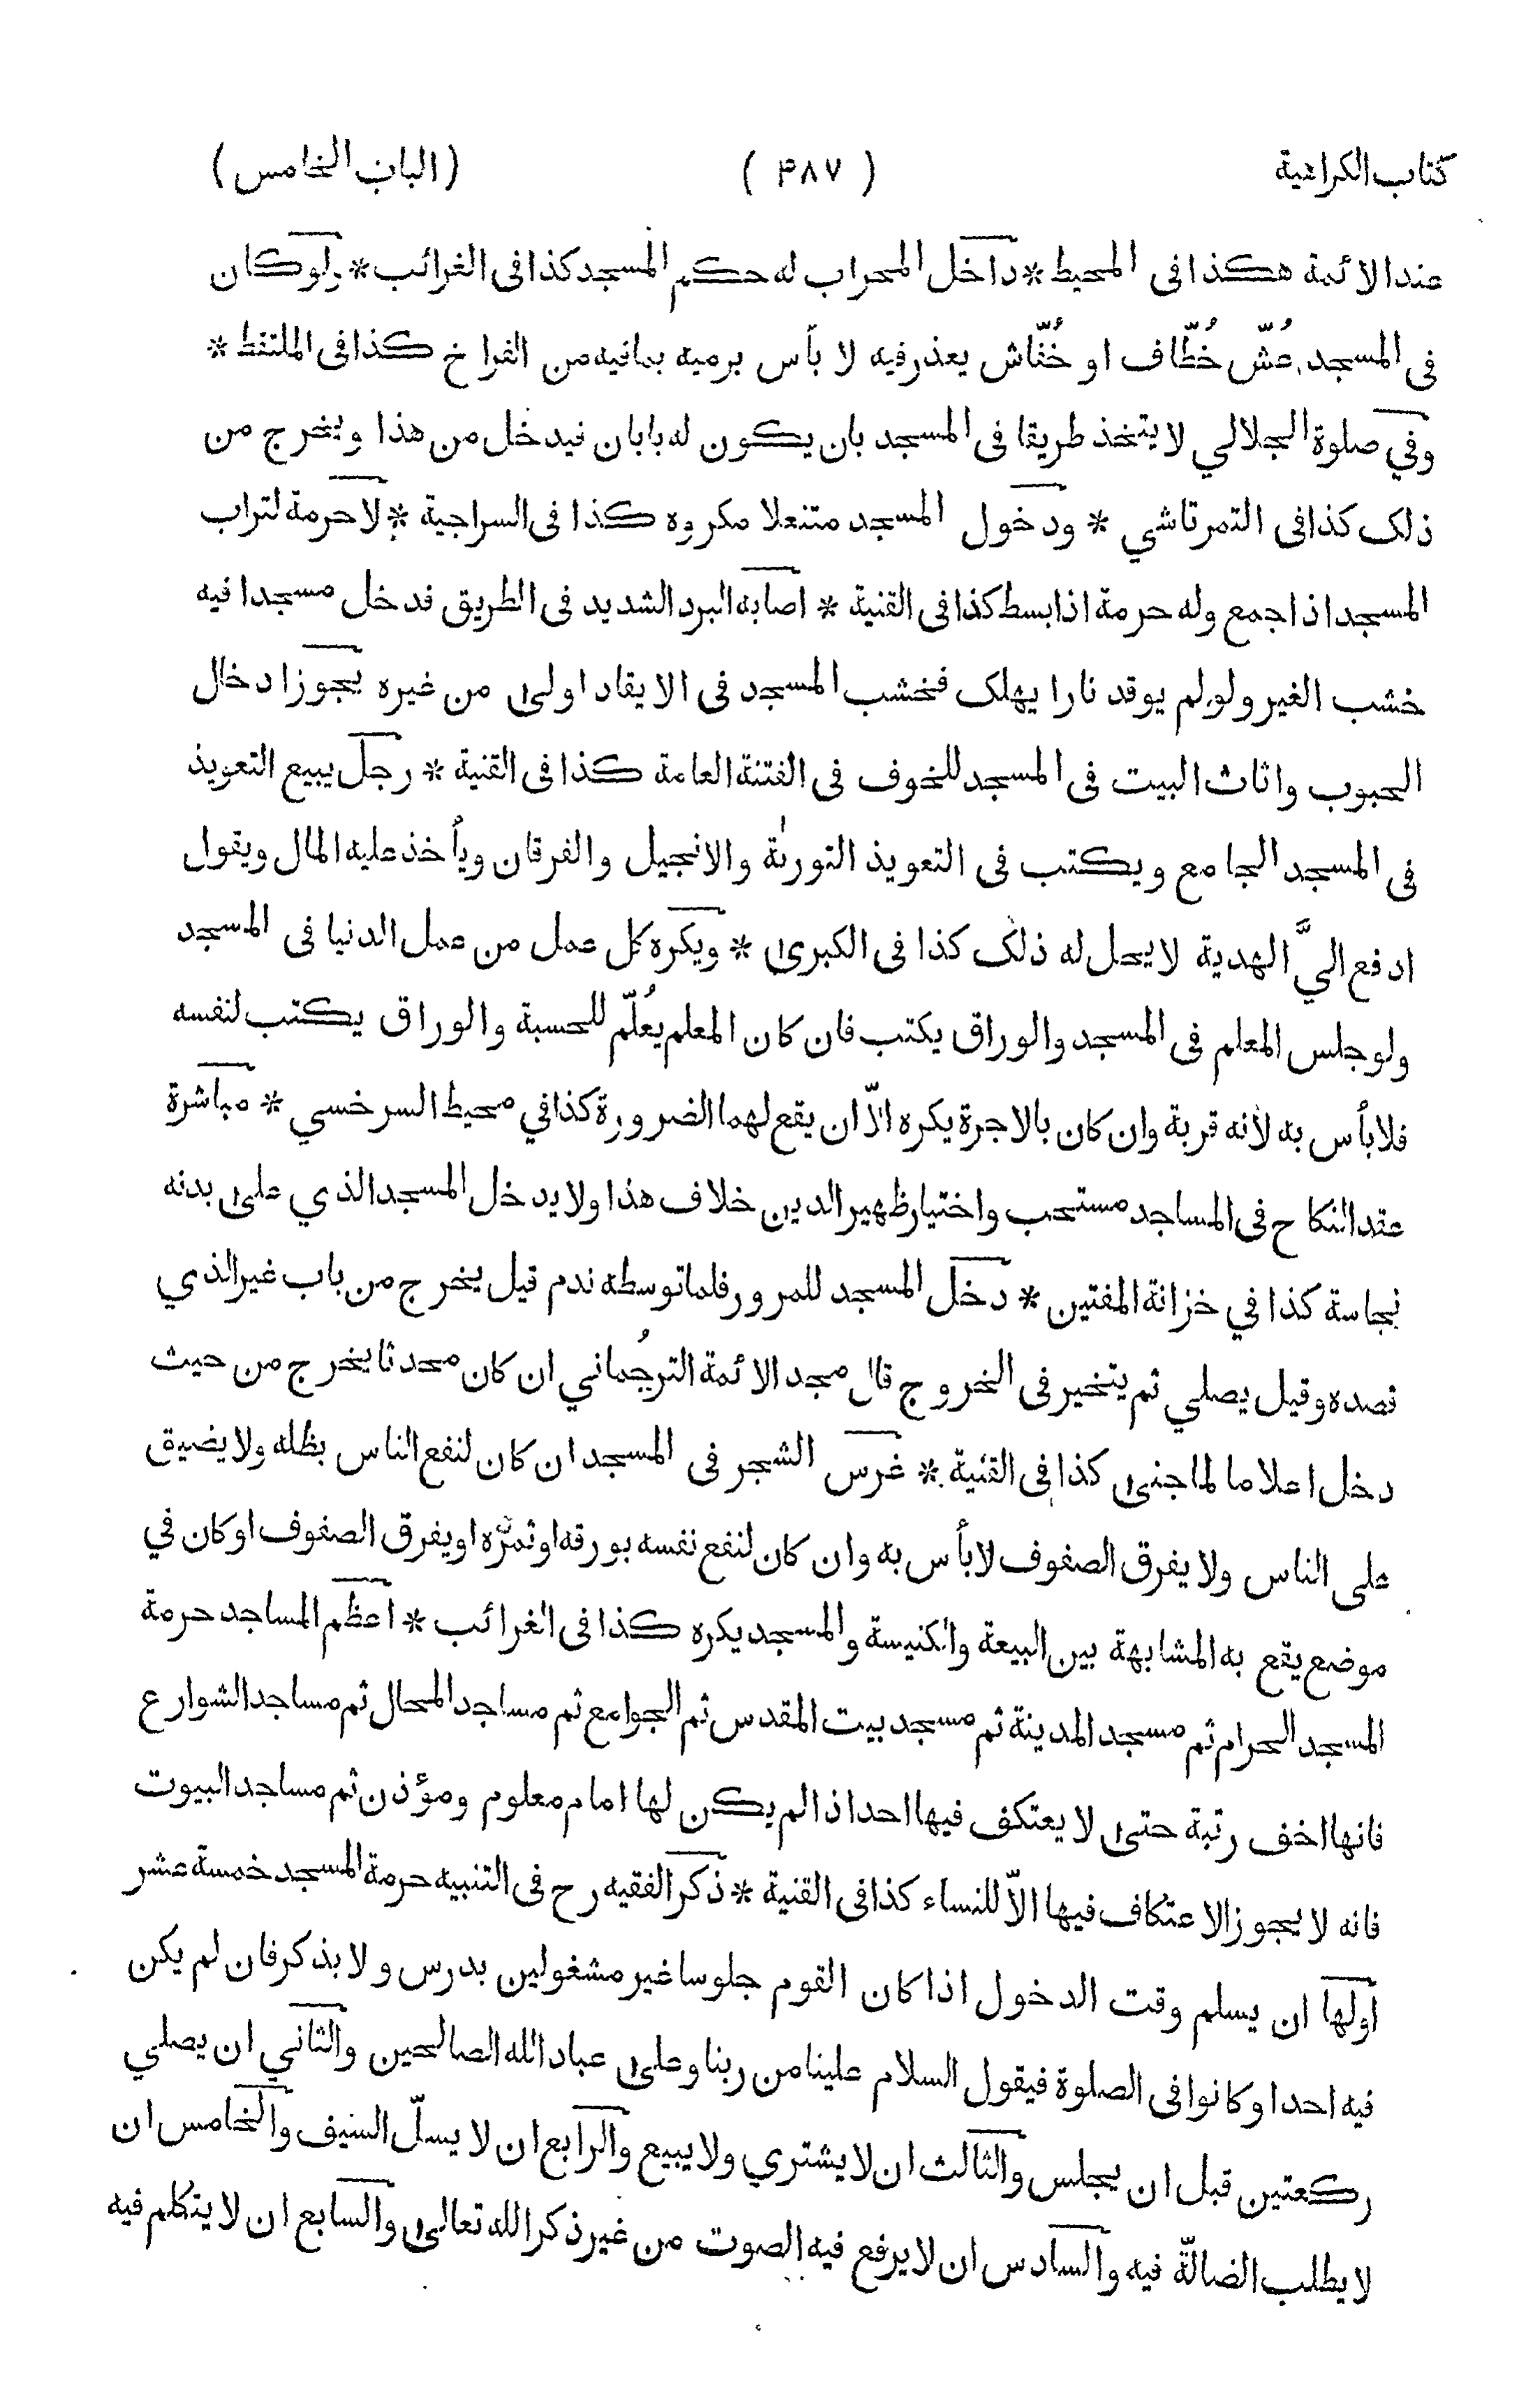 كتاب الكراهية ( ۴۸۷ ) (الباب الخامس)
عند الائمة هكذا فى المحيط * داخل المحراب له حكم المسجد كذا فى الغرائب * ولو كان
فى المسجد عُشّ خُطّاف او خُفّاش يعذر فيه لا بأس برميه بما فيه من الفراخ كذا فى الملتقط *
وفي صلوة الجلالي لا يتخذ طريقا فى المسجد بان يكون له بابان فيدخل من هذا ويخرج من
ذلك كذا فى التمرتاشي * ودخول المسجد متنعلا مكروه كذا فى السراجية * لا حرمة لتراب
المسجد اذا جمع وله حرمة اذا بسط كذا فى القنية * اصابه البرد الشديد فى الطريق فدخل مسجدا فيه
خشب الغير ولو لم يوقد نارا يهلك فخشب المسجد فى الايقاد اولى من غيره يجوز ادخال
الحبوب واثاث البيت فى المسجد للخوف فى الفتنة العامة كذا فى القنية * رجل يبيع التعويذ
فى المسجد الجامع ويكتب فى التعويذ التورىٰة والانجيل والفرقان ويأخذ عليه المال ويقول
ادفع اليَّ الهدية لا يحل له ذلك كذا فى الكبرى * ويكره كل عمل من عمل الدنيا فى المسجد
ولو جلس المعلم فى المسجد والوراق يكتب فان كان المعلم يُعلّم للحسبة والوراق يكتب لنفسه
فلا بأس به لأنه قربة وان كان بالاجرة يكره الّا ان يقع لهما الضرورة كذا في محيط السرخسي * مباشرة
عقد النكاح فى المساجد مستحب واختيار ظهير الدين خلاف هذا ولا يدخل المسجد الذي على بدنه
نجاسة كذا في خزانة المفتين * دخل المسجد للمرور فلما توسطه ندم قيل يخرج من باب غير الذي
قصده وقيل يصلي ثم يتخير فى الخروج قال مجد الائمة الترجُماني ان كان محدثا يخرج من حيث
دخل اعلاما لما جنى كذا فى القنية * غرس الشجر فى المسجد ان كان لنفع الناس بظله ولا يضيق
على الناس ولا يفرق الصفوف لا بأس به وان كان لنفع نفسه بورقه او ثمره او يفرق الصفوف او كان في
موضع يقع به المشابهة بين البيعة والكنيسة والمسجد يكره كذا فى الغرائب * اعظم المساجد حرمة
المسجد الحرام ثم مسجد المدينة ثم مسجد بيت المقدس ثم الجوامع ثم مساجد المحال ثم مساجد الشوارع
فانها اخف رتبة حتى لا يعتكف فيها احد اذا لم يكن لها امام معلوم ومؤذن ثم مساجد البيوت
فانه لا يجوز الاعتكاف فيها الّا للنساء كذا فى القنية * ذكر الفقيه رح فى التنبيه حرمة المسجد خمسة عشر
اولها ان يسلم وقت الدخول اذا كان القوم جلوسا غير مشغولين بدرس ولا بذكر فان لم يكن
فيه احد او كانوا فى الصلوة فيقول السلام علينا من ربنا وعلى عباد الله الصالحين والثاني ان يصلي
ركعتين قبل ان يجلس والثالث ان لا يشتري ولا يبيع والرابع ان لا يسلّ السيف والخامس ان
لا يطلب الضالّة فيه والسادس ان لا يرفع فيه الصوت من غير ذكر الله تعالى والسابع ان لا يتكلم فيه